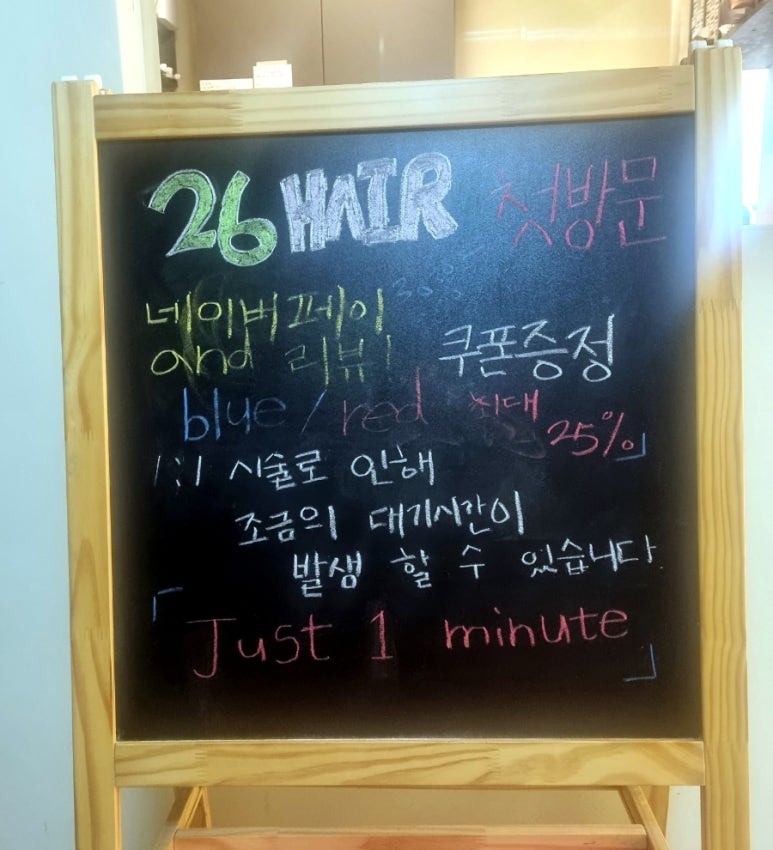 26 HAIR 첫방문
네이버페이 30%
and 리뷰! 쿠폰증정
blue / red 최대 25%」
1:1 시술로 인해
조금의 대기시간이
발생 할 수 있습니다.
「Just 1 minute」